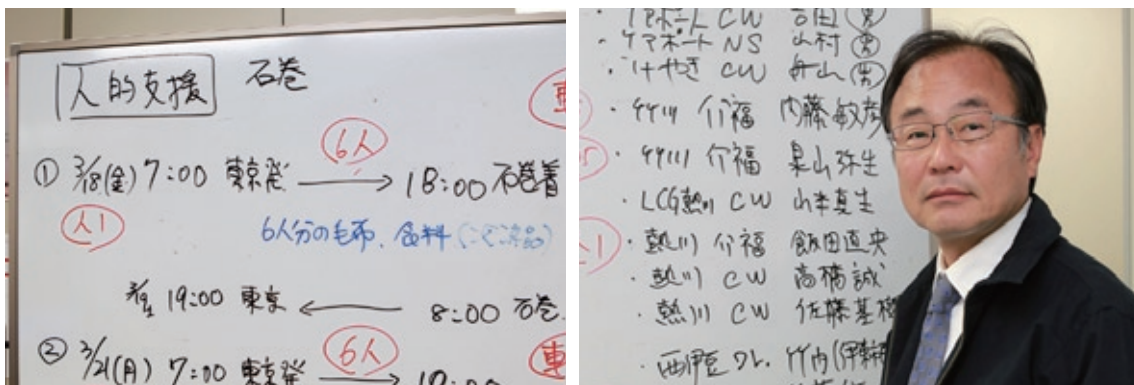 人的支援 石巻
6人
① 3/18(金) 7:00 東京発 → 18:00 石巻着
6人分の毛布、食料
19:00 東京 ← 8:00 石巻
6人
② 3/21(月) 7:00 東京発
・ケアポート CW 吉田(男)
・ケアポート NS 山村(男)
・けやき CW 舟山(男)
・竹川 介福 内藤
・竹川 介福 泉山弥生
・LCG熱川 CW 山本真生
・熱川 介福 飯田直央
・熱川 CW 高橋誠
・熱川 CW 佐藤基
・西伊豆 竹内